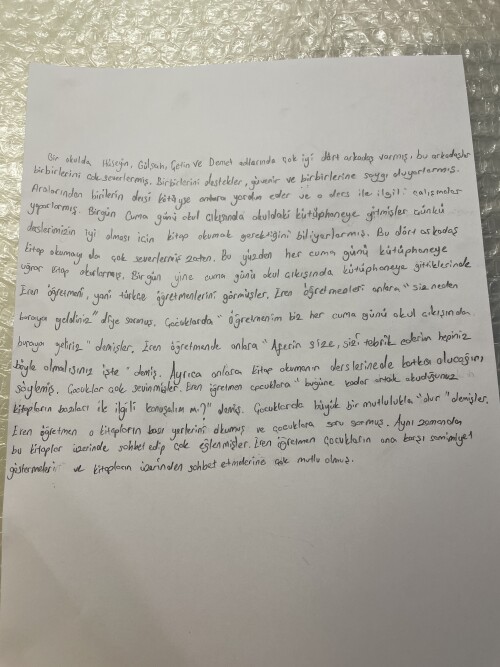 Bir okulda Hüseyin, Gülşah, Çetin ve Demet adlarında çok iyi dört arkadaş varmış, bu arkadaşlar
birbirlerini çok severlermiş. Birbirlerini destekler, güvenir ve birbirlerine saygı duyuyorlarmış.
Aralarından birilerin dersi kötüyse onlara yardım eder ve o ders ile ilgili çalışmalar
yaparlarmış. Birgün Cuma günü okul çıkışında okuldaki kütüphaneye gitmişler çünkü
derslerimizin iyi olması için kitap okumak gerektiğini biliyorlarmış. Bu dört arkadaş
kitap okumayı da çok severlermiş zaten. Bu yüzden her cuma günü kütüphaneye
uğrar kitap okurlarmış. Birgün yine cuma günü okul çıkışında kütüphaneye gittiklerinde
Eren öğretmeni, yani türkçe öğretmenlerini görmüşler. Eren öğretmenleri onlara "siz neden
buraya geldiniz" diye sormuş. Çocuklarda "öğretmenim biz her cuma günü okul çıkışında
buraya geliriz" demişler. Eren öğretmende onlara "Aferin size, sizi tebrik ederim hepiniz
böyle olmalısınız işte" demiş. Ayrıca onlara kitap okumanın derslerinede katkısı olucağını
söylemiş. Çocuklar çok sevinmişler. Eren öğretmen çocuklara "bugüne kadar ortak okuduğunuz
kitapların bazıları ile ilgili konuşalım mı?" demiş. Çocuklarda büyük bir mutlulukla "olur" demişler.
Eren öğretmen o kitapların bazı yerlerini okumuş ve çocuklara soru sormuş. Aynı zamandan
bu kitaplar üzerinde sohbet edip çok eğlenmişler. Eren öğretmen çocukların ona karşı samimiyet
göstermeleri ve kitapların üzerinden sohbet etmelerine çok mutlu olmuş.